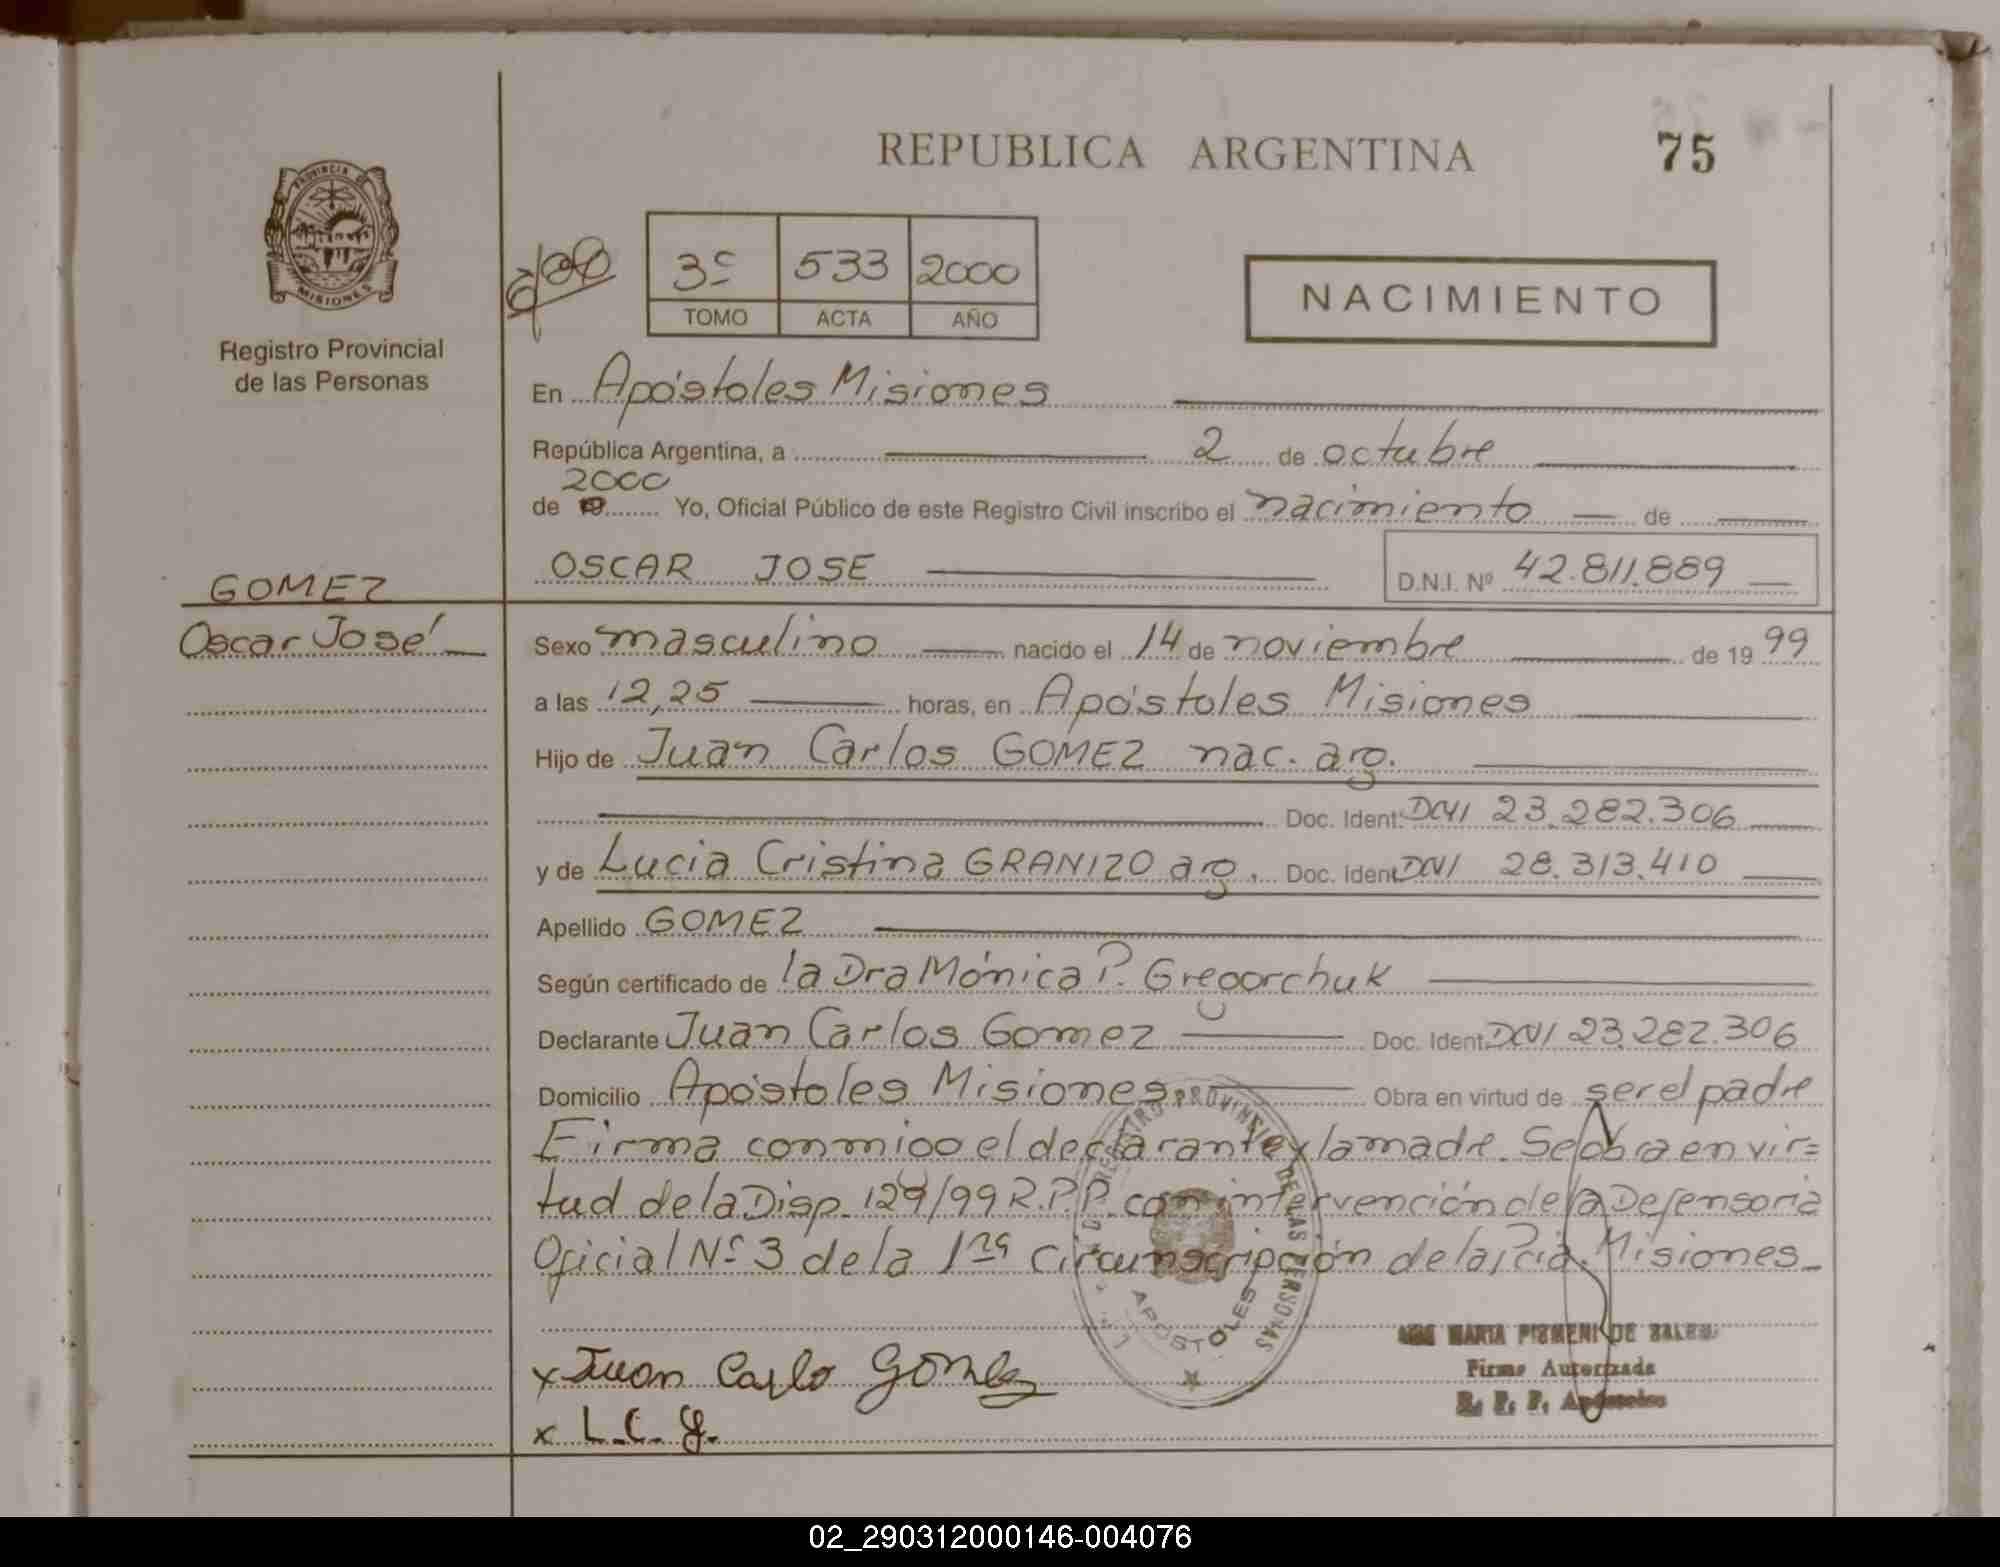 REPUBLICA ARGENTINA
75
PROVINCIA DE
MISIONES
Registro Provincial
de las Personas
3º 533 2000
TOMO ACTA AÑO
NACIMIENTO
En Apóstoles Misiones
República Argentina, a 2 de octubre
2000
de 19 Yo, Oficial Público de este Registro Civil inscribo el nacimiento de
OSCAR JOSE D.N.I. Nº 42.811.889
GOMEZ
Oscar José
Sexo masculino nacido el 14 de noviembre de 19 99
a las 12,25 horas, en Apóstoles Misiones
Hijo de Juan Carlos GOMEZ nac. arg.
Doc. Ident. DNI 23.282.306
y de Lucia Cristina GRANIZO arg. Doc. Ident. DNI 28.313.410
Apellido GOMEZ
Según certificado de la Dra Mónica P. Gregorchuk
Declarante Juan Carlos Gomez Doc. Ident. DNI 23.282.306
Domicilio Apóstoles Misiones Obra en virtud de ser el padre
Firma conmigo el declarante y la madre. Se obra en vir=
tud de la Disp. 129/99 R.P.P. con intervención de la Defensoria
Oficial Nº 3 de la 1ra Circunscripción de la Pcia. Misiones
REGISTRO PROVINCIAL DE LAS PERSONAS
APOSTOLES
x Juan Carlo Gomez
x L.C.G.
MARIA
DE
Firma Autorizada
R. P. P. Apóstoles
02_290312000146-004076